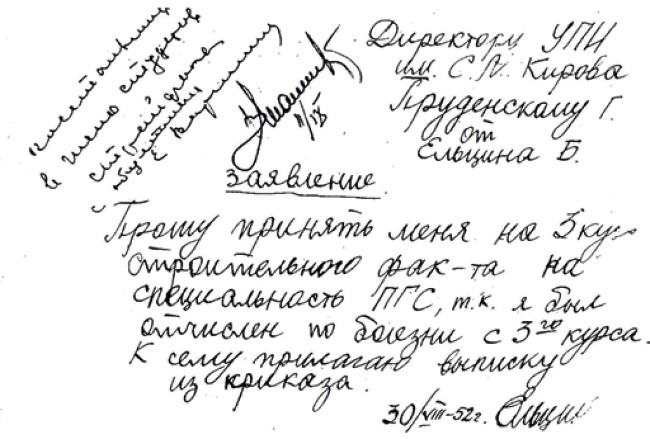 восстановить
в число студентов
строительного
с
Директору УПИ
им. С.М. Кирова
Пруденскому Г.
от
Ельцина Б.
Заявление.
Прошу принять меня на 3 кур
строительного фак-та на
специальность ПГС, т.к. я был
отчислен по боезни с 3го курса.
К сему прилагаю выписку
из приказа.
30/VIII-52г. Ельцин